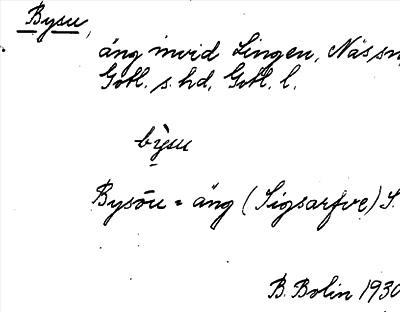 Bysu,
äng invid Lingen, Näs sn
Gotl. s. hd, Gotl. l.
bỳsu
Bysōu = äng (Sigsarfve) S.
B. Bolin 1930